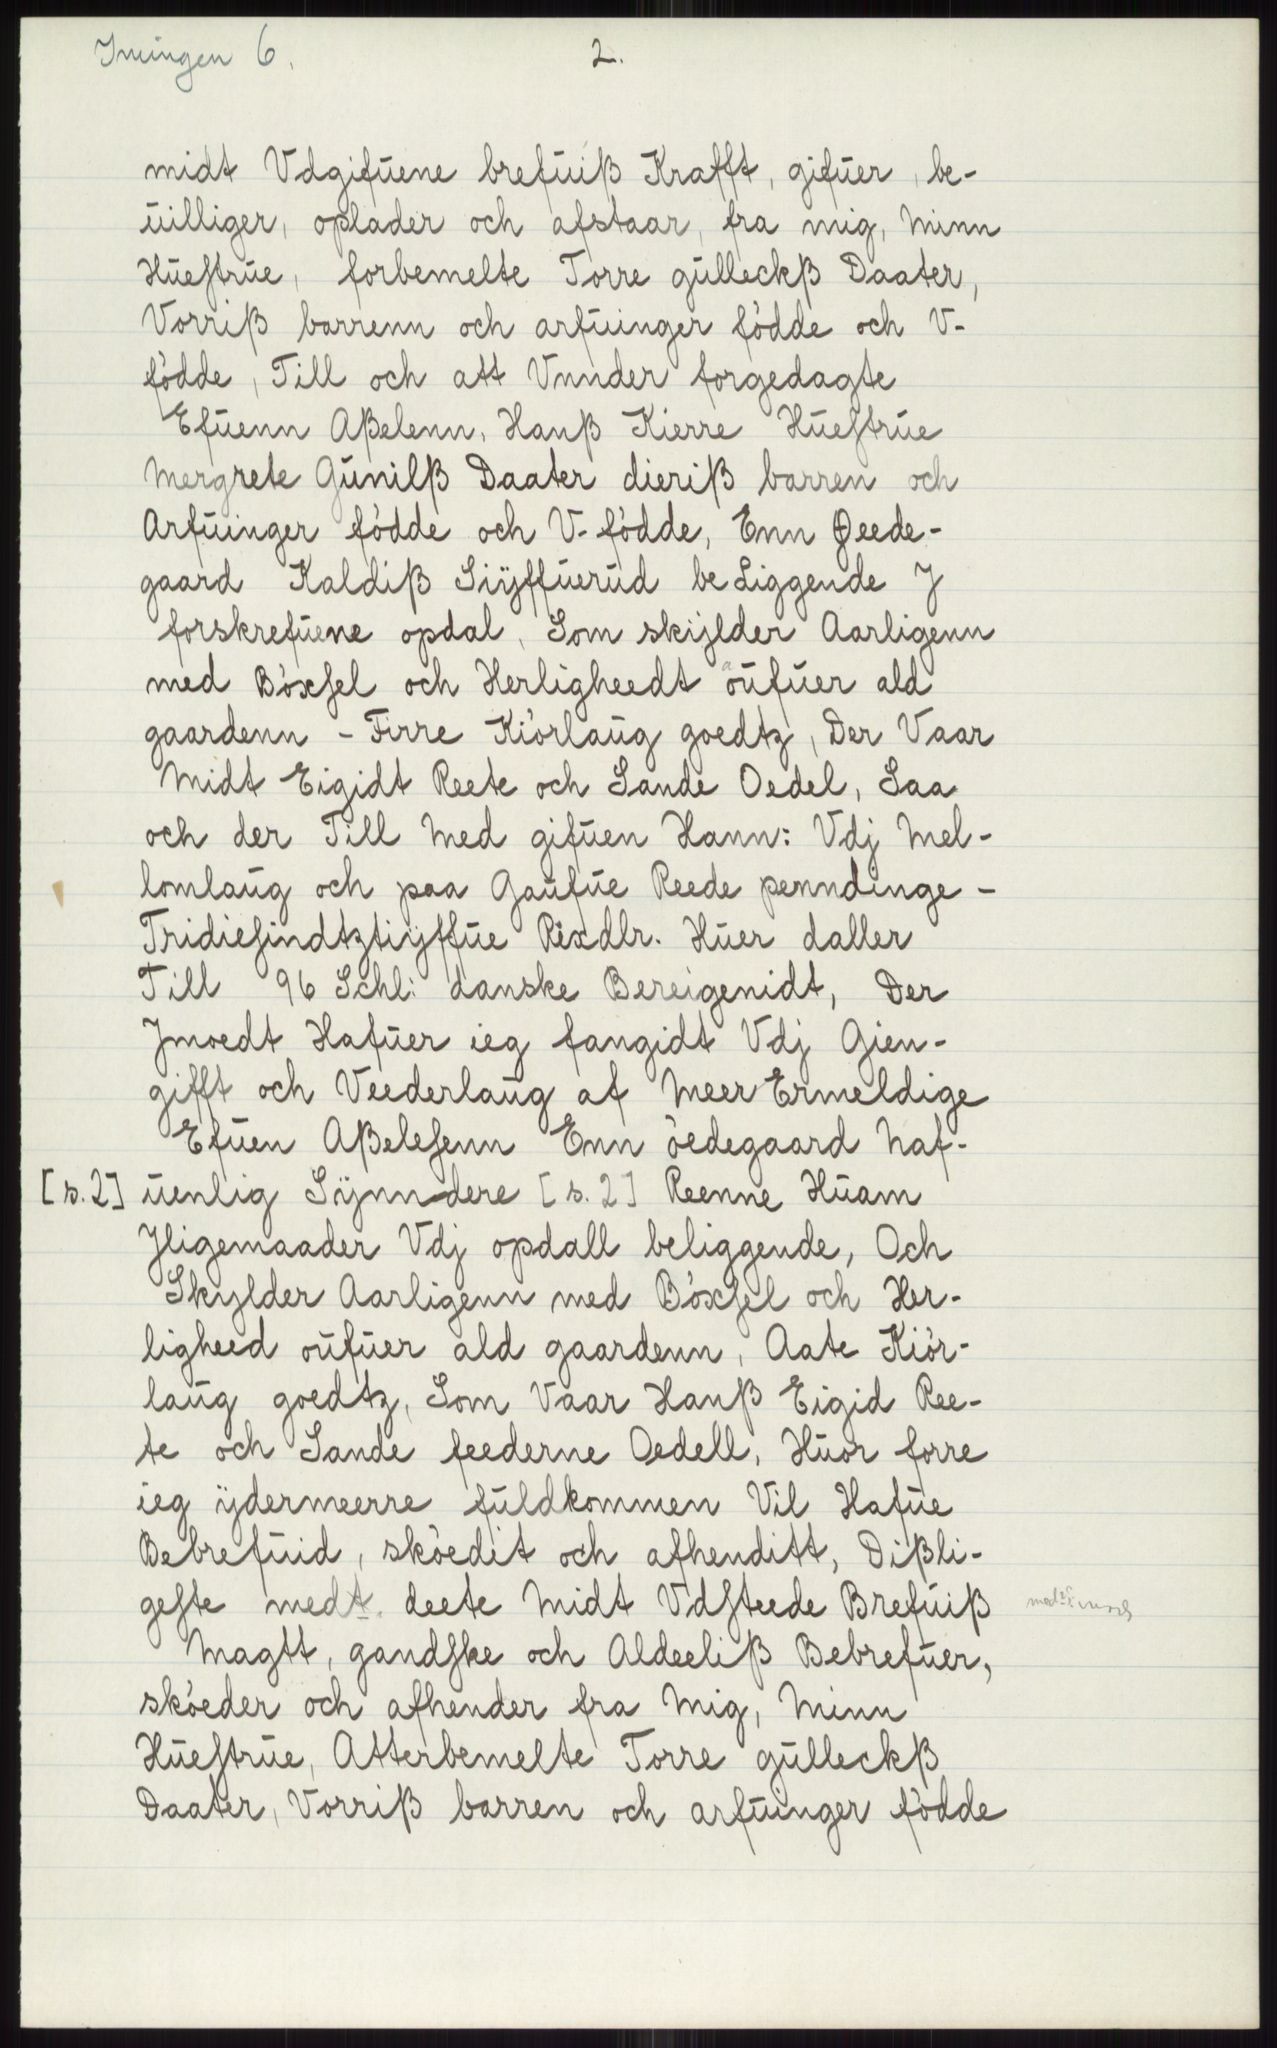 Imingen 6.
2.
midt Vdgifūene brefūiß Krafft, gifūer, be-
ūilliger, oplader och afstaar, fra mig, Minn
Hūestrūe, forbemelte Torre gūlleckß Daater,
Vorriß barrenn och arfūinger födde och V-
födde, Till och att Vnnder forgedagte
Efūenn Aßelenn, Hanß Kierre Hūestrūe
Mergrete Gūnilß Daater dieriß barren och
Arfūinger födde och V-födde, Enn Øeede-
gaard Kaldiß Siÿffūerūd be Liggende J
forskrefūene opdal, Som skijlder Aarligenn
med Böxsel och Herligheedt oūfūer ald
gaardenn - Firre Kiörlaūg goedtz, Der Vaar
Midt Eigidt Reete och Sande Oedel, Saa
och der Till Med gifūen Hann: Vdj Mel-
lomlaūg och paa Gaūfūe Reede penndinge -
Tridiesindtztiÿffūe Rixdlr. Hūer daller
Till 96 Schl: danske Bereigenidt, Der
Jmoedt Hafūer ieg fangidt Vdj Gien-
gifft och Veederlaūg af Meer Ermeldige
Efūen Aßelesenn Enn öedegaard Naf-
[s.2] ūenlig Sÿnndere [s.2] Reenne Hūam
Jligemaader Vdj opdall beliggende, Och
Skylder Aarligenn med Böxsel och Her-
ligheed oūfūer ald gaardenn, Aate Kiör-
laūg goedtz, Som Vaar Hanß Eigid Ree-
te och Sande feederne Oedell, Hūor forre
ieg ÿdermeerre fūldkommen Vil Hafūe
Bebrefūid, sköedit och afhenditt, Dißli-
geste medt deete Midt Vdsteede Brefūiß
Magtt, gandske och Aldeeliß Bebrefūer,
sköeder och afhender fra Mig, Minn
Hūestrūe, Atterbemelte Torre gūlleckß
Daater, Vorriß barren och arfūinger födde